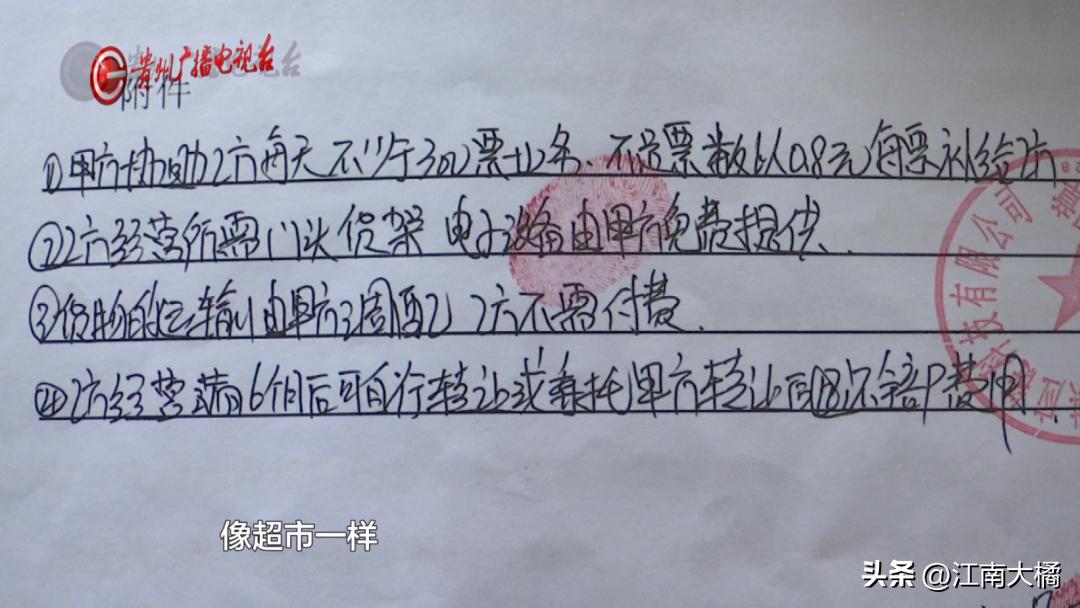 贵州广播电视台
附件
①甲方协助乙方每天不少于300票业务、不足票数以0.8元每票补给乙方
②乙方经营所需门头货架 电子设备由甲方免费提供、
③货物的运输由甲方调配 乙方不需付费、
④乙方经营满6个月后可自行转让或委托甲方转让
有限公司
像超市一样
头条 @江南大橘